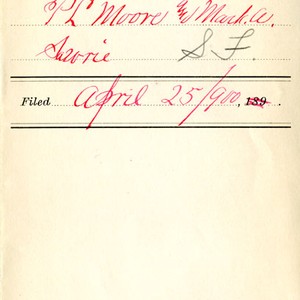 P L Moore Mark. A.
Lavorie S F.
Filed April 25/900, 189 .